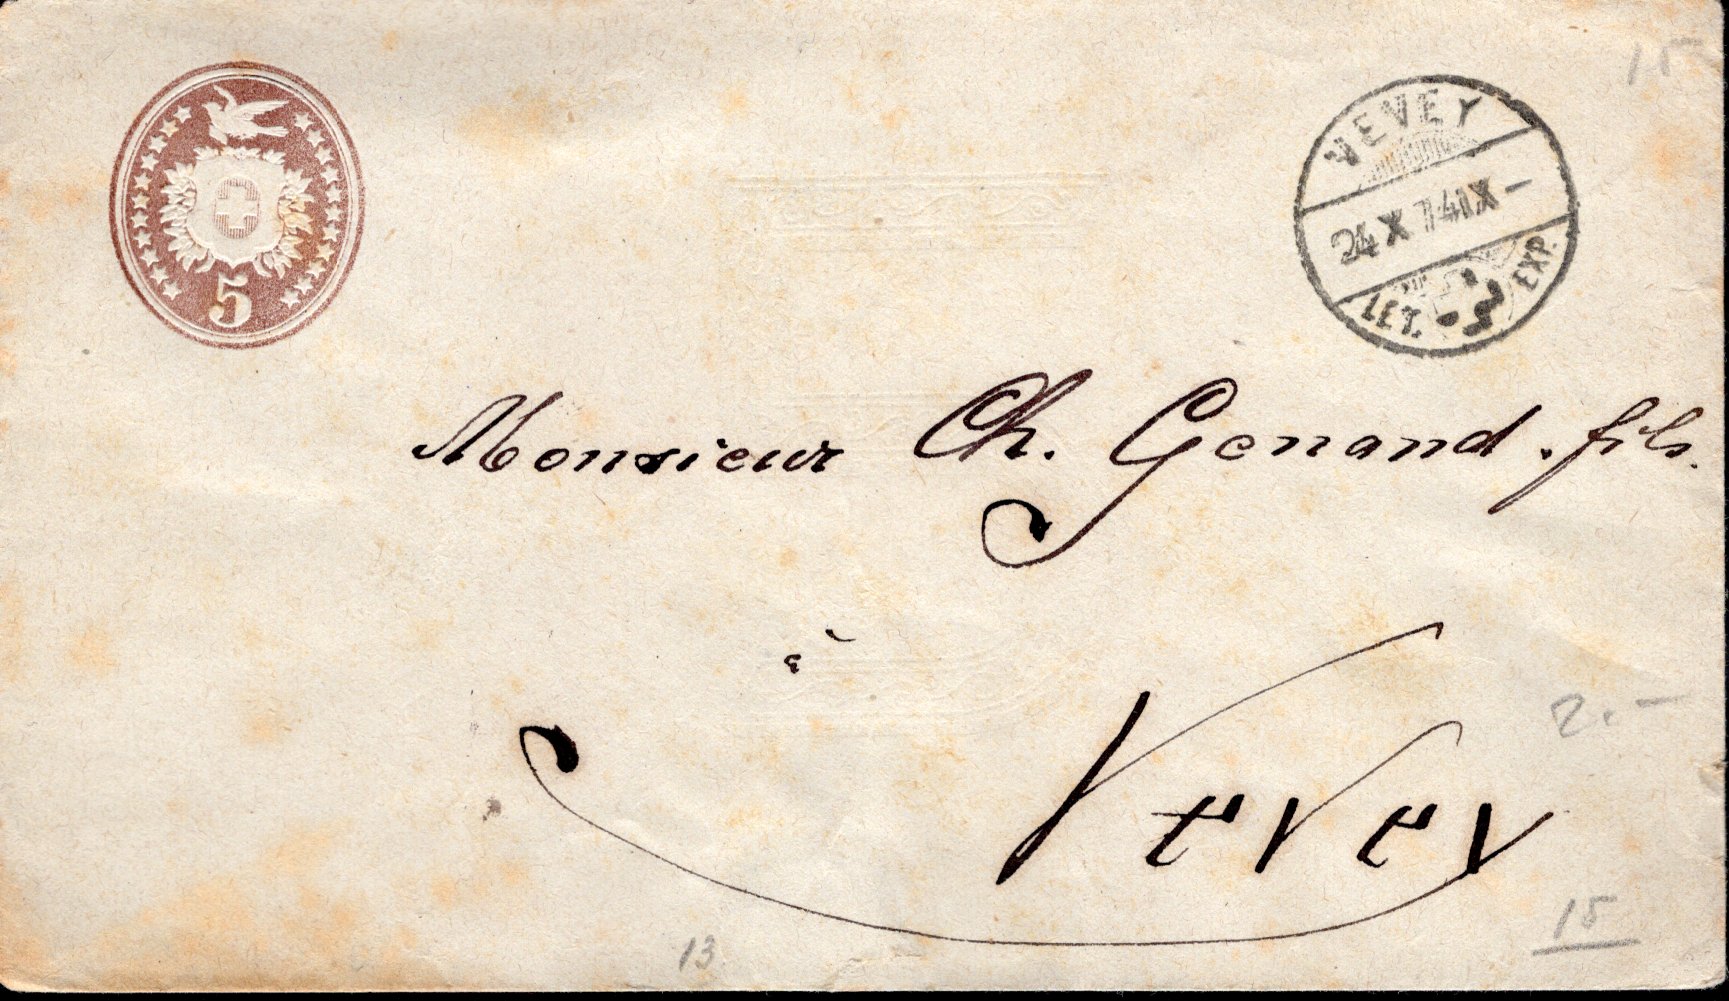 5
15
VEVEY
24 X 74 IX -
LET. EXP.
Monsieur Ch. Genand. fils.
à
Vevey
2.-
15
13